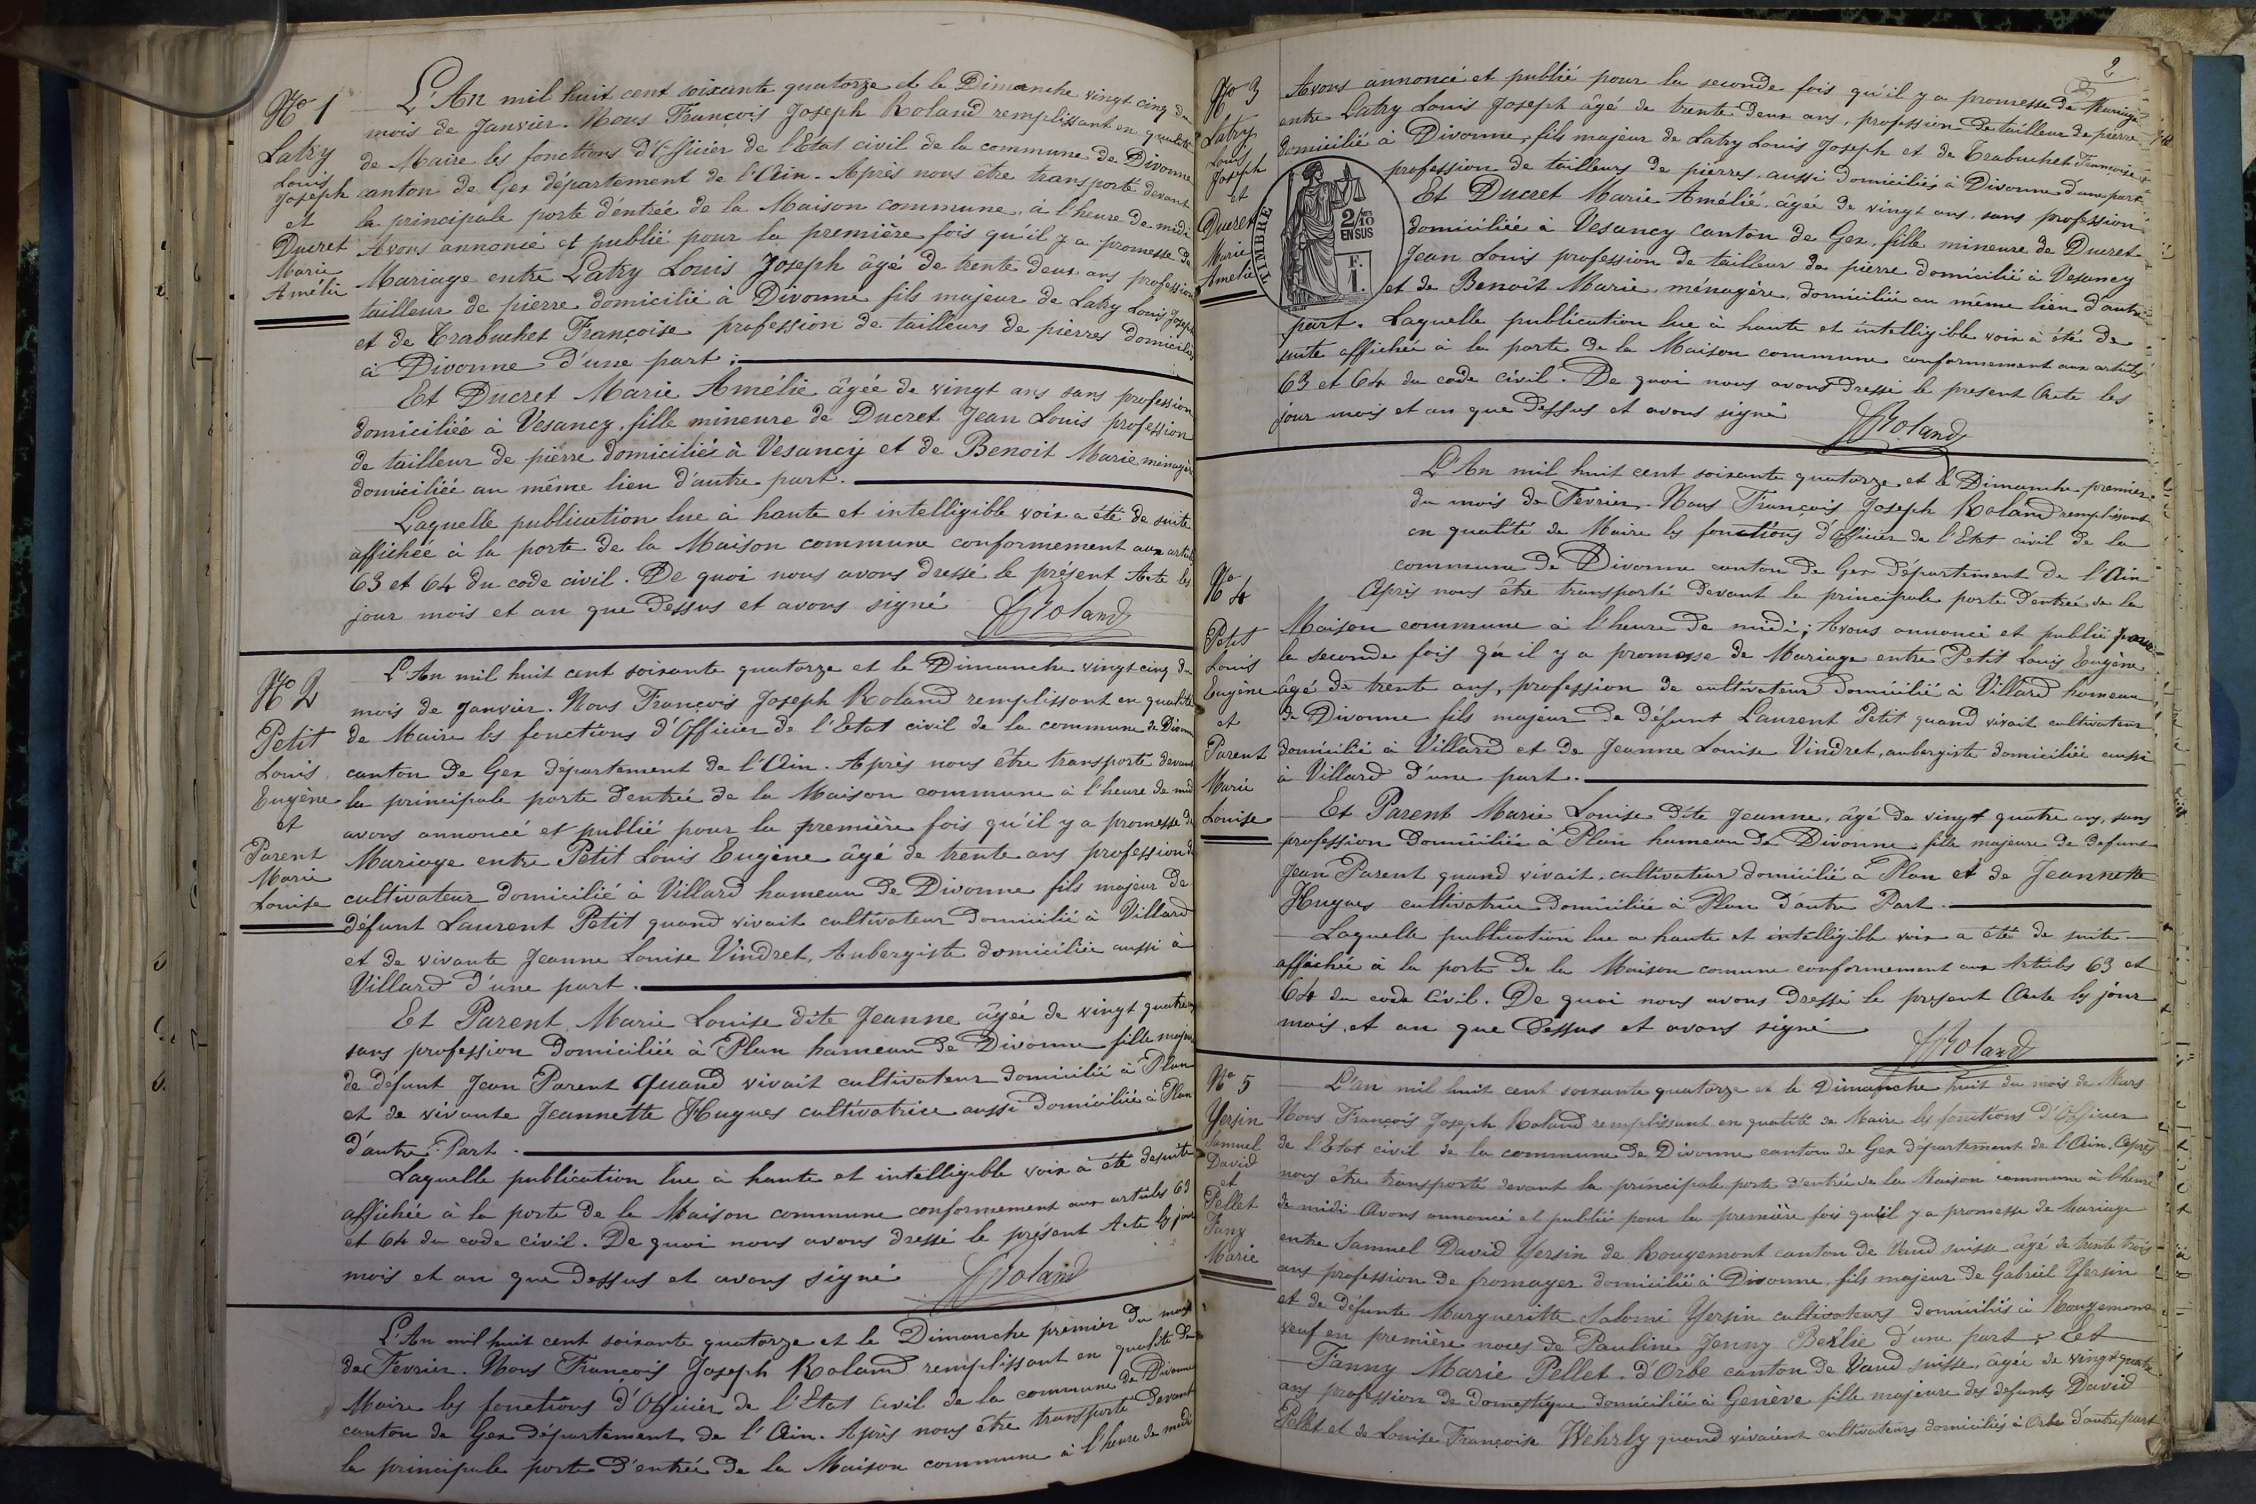 N° 1
Latry
Louis
Joseph
et
Ducret
Marie
Amélie
L'An mil huit cent soixante quatorze et le Dimanche vingt cinq du
mois de Janvier. Nous François Joseph Roland remplissant en qualité
de Maire les fonctions d'Officier de l'Etat civil de la commune de Divonne
canton de Gex département de l'Ain. Après nous être transporté devant
la principale porte d'entrée de la Maison commune, à l'heure de midi
Avons annoncé et publié pour la première fois qu'il y a promesse de
Mariage entre Latry Louis Joseph âgé de trente deux ans profession
tailleur de pierre domicilié à Divonne fils majeur de Latry Louis Joseph
et de Trabuchet Françoise profession de tailleurs de pierres domiciliés
à Divonne d'une part ;
Et Ducret Marie Amélie âgée de vingt ans sans profession
domiciliée à Vesancy, fille mineure de Ducret Jean Louis profession
de tailleur de pierre domiciliés à Vesancy et de Benoit Marie ménagère
domiciliée au même lieu d'autre part.
Laquelle publication lue à haute et intelligible voix a été de suite
affichée à la porte de la Maison commune conformement aux articles
63 et 64 du code civil. De quoi nous avons dressé le présent Acte les
jour mois et an que dessus et avons signé
Roland
N° 2
Petit
Louis
Eugène
et
Parent
Marie
Louise
L'An mil huit cent soixante quatorze et le Dimanche vingt cinq du
mois de Janvier. Nous François Joseph Roland remplissant en qualité
de Maire les fonctions d'Officier de l'Etat civil de la commune de Divonne
canton de Gex département de l'Ain. Après nous être transporté devant
la principale porte d'entrée de la Maison commune à l'heure de midi
avons annoncé et publié pour la première fois qu'il y a promesse de
Mariage entre Petit Louis Eugène âgé de trente ans profession de
cultivateur domicilié à Villard hameau de Divonne fils majeur de
défunt Laurent Petit quand vivait cultivateur domicilié à Villard
et de vivante Jeanne Louise Vindret, Aubergiste domiciliée aussi à
Villard d'une part.
Et Parent Marie Louise dite Jeanne âgée de vingt quatre ans
sans profession domiciliée à Plan hameau de Divonne fille majeure
de défunt Jean Parent quand vivait cultivateur domicilié à Plan
et de vivante Jeannette Hugues cultivatrice aussi domiciliée à Plan
d'autre Part.
Laquelle publication lue à haute et intelligible voix à été de suite
affichée à la porte de la Maison commune conformement aux articles 63
et 64 du code civil. De quoi nous avons dressé le présent Acte les jour
mois et an que dessus et avons signé
Roland
L'An mil huit cent soixante quatorze et le Dimanche premier du mois
de Fevrier. Nous François Joseph Roland remplissant en qualité de
Maire les fonctions d'Officier de l'Etat civil de la commune de Divonne
canton de Gex département de l'Ain. Après nous être transporté devant
la principale porte d'entrée de la Maison commune à l'heure de midi
2
N° 3
Latry
Louis
Joseph
et
Ducret
Marie
Amelie
Avons annoncé et publié pour la seconde fois qu'il y a promesse de Mariage
entre Latry Louis Joseph âgé de trente deux ans, profession de tailleur de pierre
domicilié à Divonne, fils majeur de Latry Louis Joseph et de Trabuchet Françoise
profession de tailleurs de pierres, aussi domiciliés à Divonne d'une part.
Et Ducret Marie Amélie, âgée de vingt ans, sans profession
domiciliée à Vesancy canton de Gex, fille mineure de Ducret
Jean Louis profession de tailleur de pierre domicilié à Vesancy
et de Benoît Marie, ménagère, domiciliée au même lieu d'autre
part. Laquelle publication lue à haute et intelligible voix à été de
suite affichée à la porte de la Maison commune conformement aux articles
63 et 64 du code civil. De quoi nous avons dressé le present Acte les
jour mois et an que dessus et avons signé
Roland
TIMBRE
2/10
EN SUS
F.
1.
L'An mil huit cent soixante quatorze et le Dimanche premier
du mois de Fevrier. Nous François Joseph Roland remplissant
en qualité de Maire les fonctions d'Officier de l'Etat civil de la
commune de Divonne canton de Gex département de l'Ain
Après nous être transporté devant la principale porte d'entrée de la
N° 4
Petit
Louis
Eugène
et
Parent
Marie
Louise
Maison commune à l'heure de midi; Avons annoncé et publié pour
la seconde fois qu'il y a promesse de Mariage entre Petit Louis Eugène
âgé de trente ans, profession de cultivateur domicilié à Villard hameau
de Divonne fils majeur de défunt Laurent Petit quand vivait cultivateur
domicilié à Villard et de Jeanne Louise Vindret, aubergiste domiciliée aussi
à Villard d'une part.
Et Parent Marie Louise dite Jeanne, âgé de vingt quatre ans, sans
profession domiciliée à Plan hameau de Divonne fille majeure de defunt
Jean Parent quand vivait, cultivateur domicilié à Plan et de Jeannette
Hugues cultivatrice domiciliée à Plan d'autre Part.
Laquelle publication lue a haute et intelligible voix a été de suite
affichée à la porte de la Maison comune conformement aux Articles 63 et
64 du code Civil. De quoi nous avons dressé le present Acte les jour
mois, et an que dessus et avons signé
Roland
N° 5
Yersin
Samuel
David
et
Pellet
Fany
Marie
L'an mil huit cent soixante quatorze et le Dimanche huit du mois de Mars
Nous François Joseph Roland remplissant en qualité de Maire les fonctions d'Officier
de l'Etat civil de la commune de Divonne canton de Gex département de l'Ain. Après
nous être transporté devant la principale porte d'entrée de la Maison commune à l'heure
de midi Avons annoncé et publié pour la première fois qu'il y a promesse de Mariage
entre Samuel David Yersin de Rougemont canton de Vaud suisse âgé de trente trois
ans profession de fromager domicilié à Divonne, fils majeur de Gabriel Yersin
et de défunte Marguerite Salomé Yersin cultivateurs domiciliés à Rougemont
veuf en première noces de Pauline Jenny Berlie d'une part ; Et
Fanny Marie Pellet d'Orbe canton de Vaud suisse, âgée de vingt quatre
ans profession de Domestique domiciliée à Genève fille majeure des defunts David
Pellet et de Louise Françoise Wehrly quand vivaient cultivateurs domiciliés à Orbe d'autre part